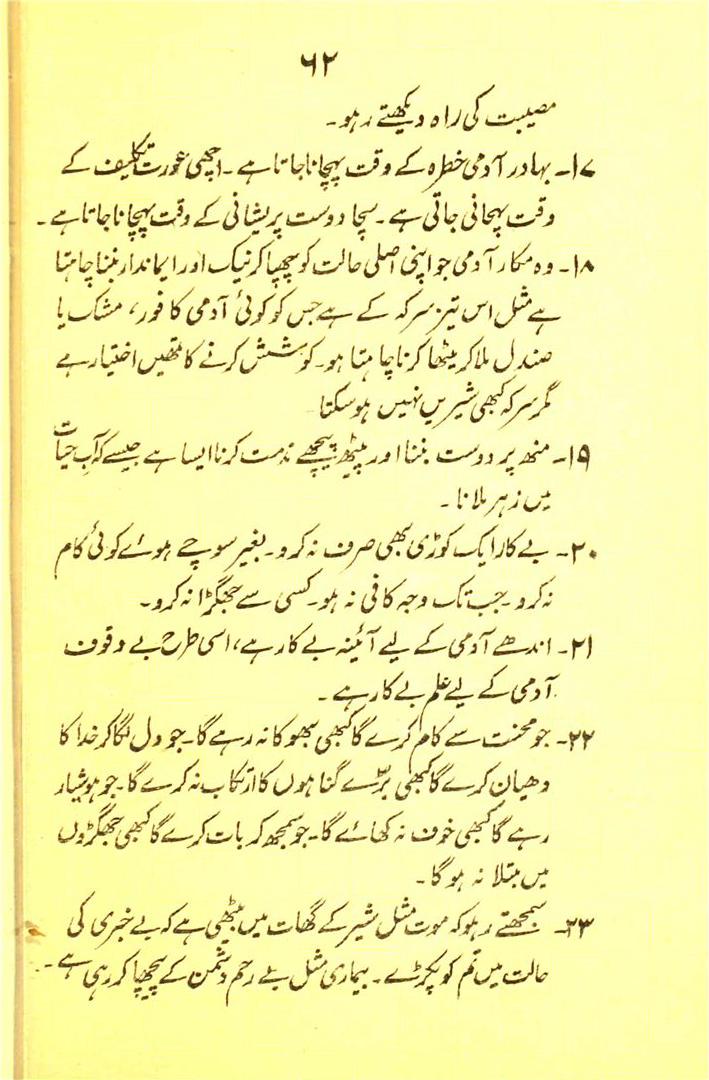 ۶۲
مصیبت کی راہ دیکھتے رہو۔
۱۷۔ بہادر آدمی خطرہ کے وقت پہچانا جاتا ہے۔ اچھی عورت تکلیف کے
وقت پہچانی جاتی ہے۔ سچا دوست پریشانی کے وقت پہچانا جاتا ہے۔
۱۸۔ وہ مکار آدمی جو اپنی اصلی حالت کو چھپا کر نیک اور ایماندار بننا چاہتا
ہے مثل اس تیز سرکہ کے ہے جس کو کوئی آدمی کافور، مشک یا
صندل ملا کر میٹھا کرنا چاہتا ہو۔ کوشش کرنے کا تمھیں اختیار ہے
مگر سرکہ کبھی شیریں نہیں ہو سکتا
۱۹۔ منھ پر دوست بننا اور پیٹھ پیچھے مذمت کرنا ایسا ہے جیسے کہ آبِ حیات
میں زہر ملانا۔
۲۰۔ بے کار ایک کوڑی بھی صرف نہ کرو۔ بغیر سوچے ہوئے کوئی کام
نہ کرو۔ جب تک وجہ کافی نہ ہو۔ کسی سے جھگڑا نہ کرو۔
۲۱۔ اندھے آدمی کے لیے آئینہ بے کار ہے، اسی طرح بے وقوف
آدمی کے لیے علم بے کار ہے۔
۲۲۔ جو محنت سے کام کرے گا کبھی بھوکا نہ رہے گا۔ جو دل لگا کر خدا کا
دھیان کرے گا کبھی بڑے گناہوں کا ارتکاب نہ کرے گا۔ جو ہوشیار
رہے گا کبھی خوف نہ کھائے گا۔ جو سمجھ کر بات کرے گا کبھی جھگڑوں
میں مبتلا نہ ہو گا۔
۲۳۔ سمجھتے رہو کہ موت مثل شیر کے گھات میں بیٹھی ہے کہ بے خبری کی
حالت میں تم کو پکڑے۔ بیماری مثل بے رحم دشمن کے پیچھا کر رہی ہے۔